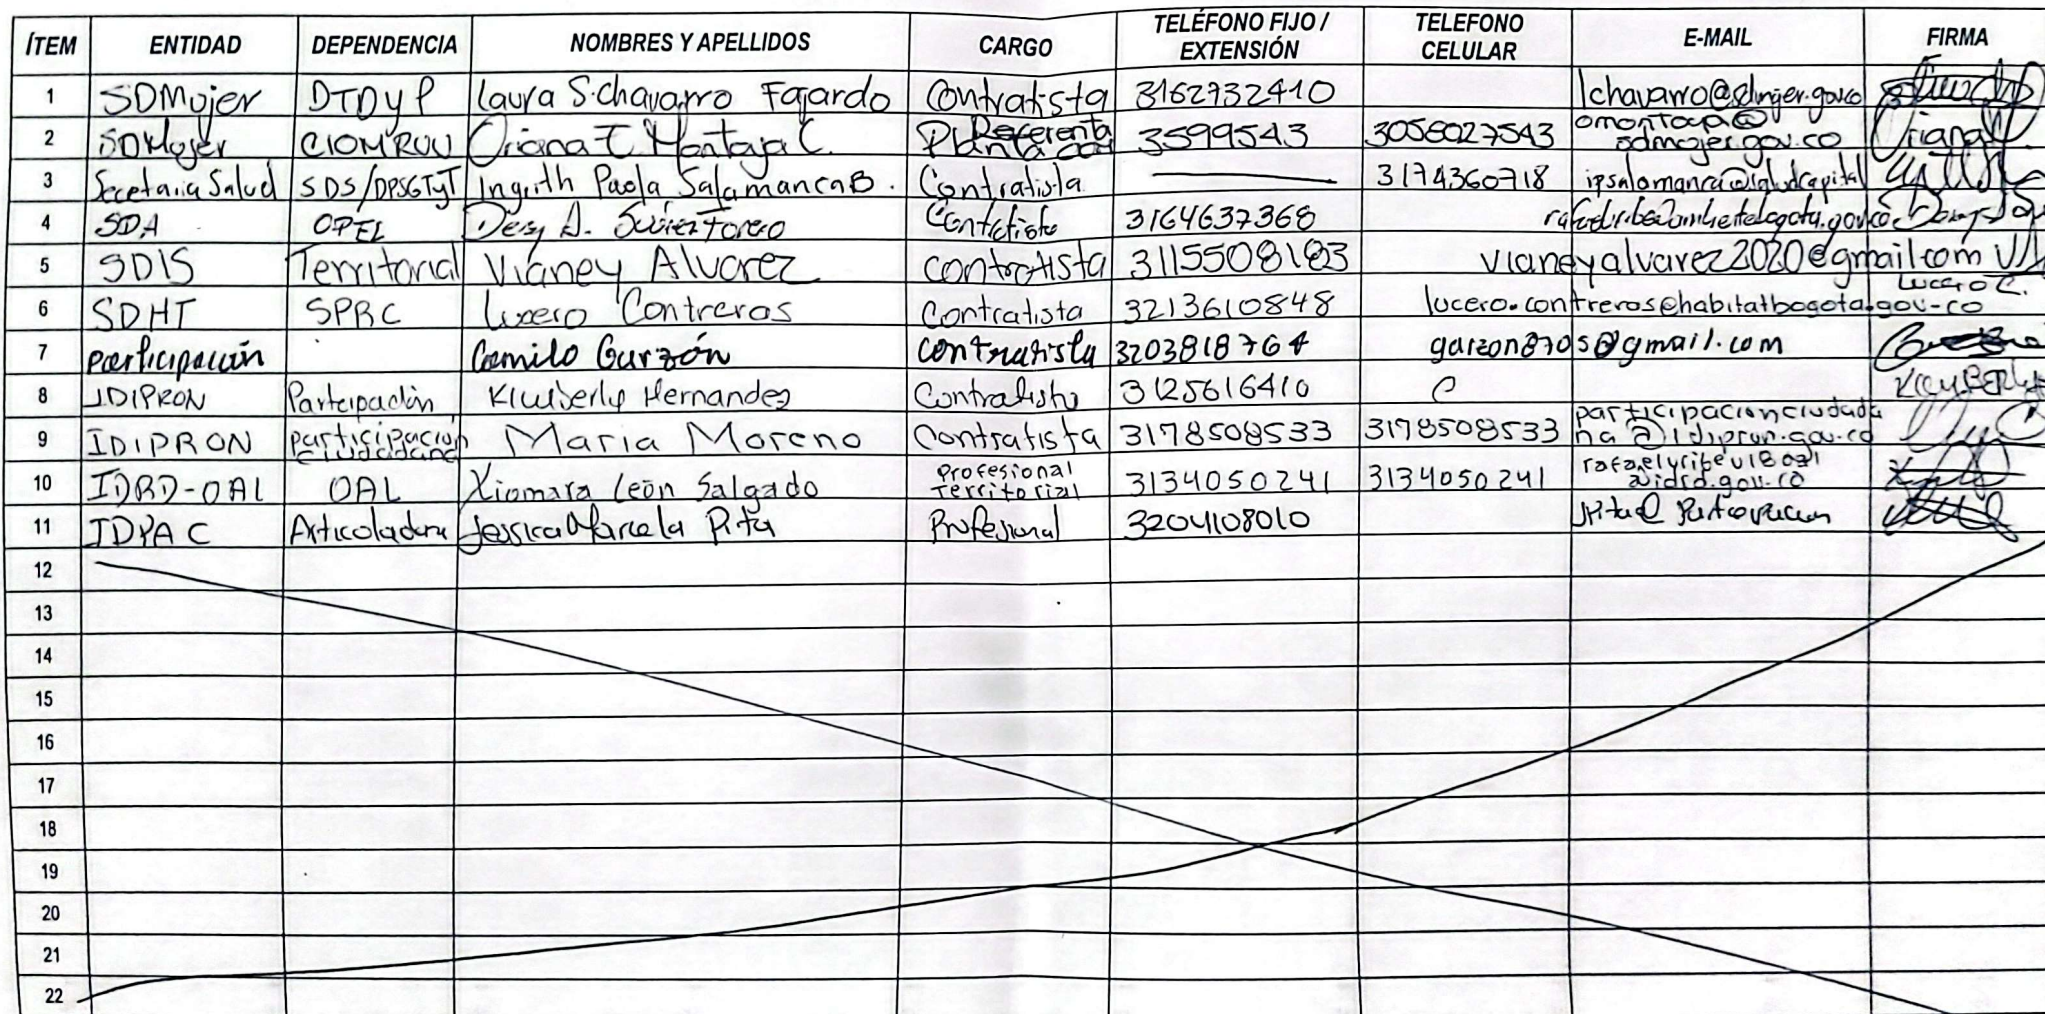 ÍTEM ENTIDAD DEPENDENCIA NOMBRES Y APELLIDOS CARGO TELÉFONO FIJO / EXTENSIÓN TELEFONO CELULAR E-MAIL FIRMA
1 SDMujer DTDyP Laura S. chavarro Fajardo Contratista 3162732410 lchavarro@sdmujer.gov.co
2 SDMujer CIOMRUU Oriana T. Montoya C. Referenta Planta 3599543 3058027543 omontoya@sdmujer.gov.co
3 Secretaria Salud SDS/DPSGTyT Ingrith Paola Salamanca B. Contratista 3174360718 ipsalamanca@saludcapital
4 SDA OPEL Contratista 3164637368
5 SDIS Territorial Vianey Alvarez contratista 3115508183 vianeyalvarez2020@gmail.com
6 SDHT SPRC Lucero Contreras Contratista 3213610848 lucero.contreras@habitatbogota.gov.co Lucero C.
7 participación Camilo Garzón contratista 3203818764 garzon8705@gmail.com
8 IDIPRON Participación Kimberly Hernandez Contratista 3125616410 Kimberly
9 IDIPRON participacion ciudadana Maria Moreno Contratista 3178508533 3178508533 participacionciudadana@idipron.gov.co
10 IDRD-OAL OAL Xiomara León Salgado Profesional Territorial 3134050241 3134050241 @idrd.gov.co
11 IDPAC Articuladora Jessica Marcela Pita Profesional 3204108010
12
13
14
15
16
17
18
19
20
21
22